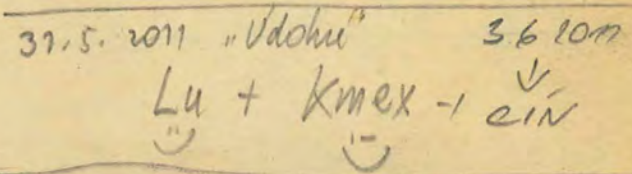 31.5. 2011 „Vdolně" 3.6 2011
Lu + Kmex + eiN